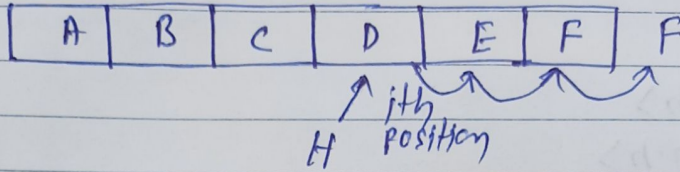 A B C D E F F
ith
H position